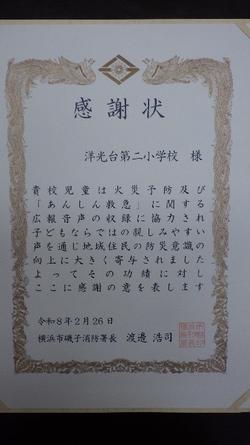 感謝状
洋光台第二小学校 様
貴校児童は火災予防及び
「あんしん救急」に関する
広報音声の収録に協力され
子どもならではの親しみやすい
声を通じ地域住民の防災意識の
向上に大きく寄与されました
よってその功績に対し
ここに感謝の意を表します
令和8年2月26日
横浜市磯子消防署長 渡邉 浩司